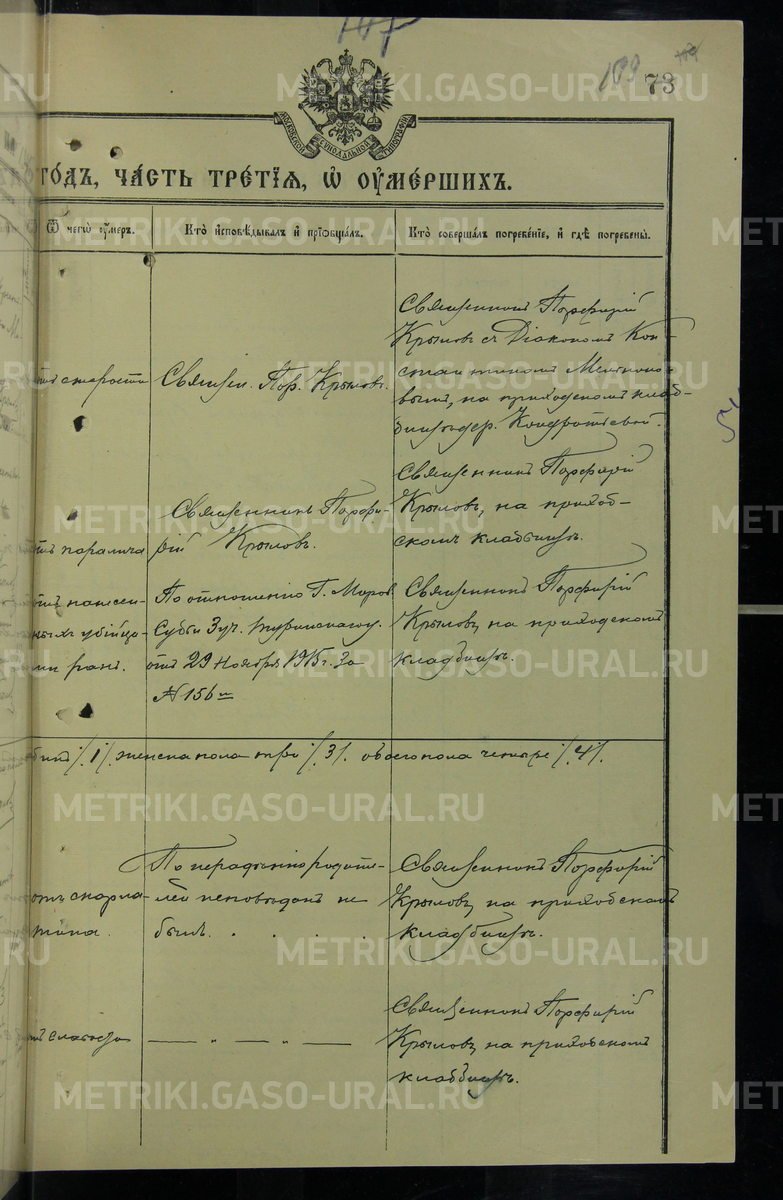 107
109 73
МОСКОВСКОЙ СѴНОДАЛЬНОЙ ТИПОГРАФІИ
го́дъ, ча́сть тре́тїѧ, ѡ҆ ᲂу҆ме́ршихъ.
Ѿ чегѡ̀ ᲂу҆́меръ.
Кто̀ и҆сповѣ́дывалъ и҆ прїѡбща́лъ.
Кто̀ соверша́лъ погребе́нїе, и҆ гдѣ̀ погребены̀.
отъ старости
Священ. Пор. Крыловъ.
Священникъ Порфирій
Крыловъ съ Діакономъ Кон-
стантиномъ
вымъ, на приходскомъ клад-
бищѣ дер. Кондратьевой.
отъ паралича
Священникъ Порфи-
рій Крыловъ.
Священникъ Порфирій
Крыловъ, на приход-
скомъ кладбищѣ.
отъ нанесен-
ныхъ убійца-
ми ранъ.
По отношенію Г. Миров.
Судьи 3 уч. Туринскаго у.
отъ 29 Ноября 1915 г. За
№ 156
Священникъ Порфирій
Крыловъ, на приходскомъ
кладбищѣ.
/1/. женска пола три /3/. обоего пола четыре /4/.
отъ скарла-
тина.
По нерадѣнію родите-
лей исповѣданъ не
былъ. . . . .
Священникъ Порфирій
Крыловъ, на приходскомъ
кладбищѣ.
отъ слабости
— „ — „ —
Священникъ Порфирій
Крыловъ, на приходскомъ
кладбищѣ.
METRIKI.GASO-URAL.RU